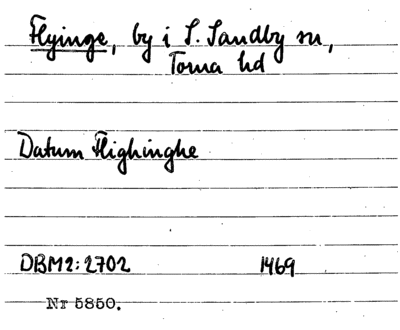 Flyinge, by i S. Sandby sn,
Torna hd
Datum Flighinghe
DBM2:2702 1469
Nr 5850.